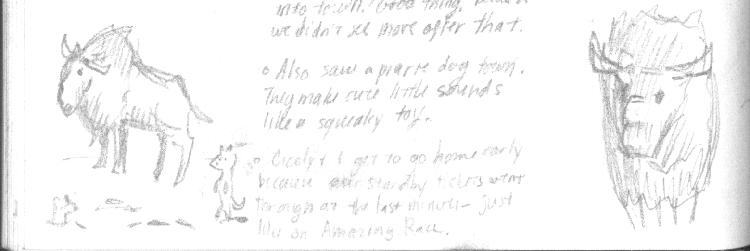 into town. Good thing,
we didn't see more after that.
o Also saw a prairie dog town.
They make cute little sounds
like a squeaky toy.
o Cicely & I got to go home early
because our standby tickets went
through at the last minute – just
like on Amazing Race.